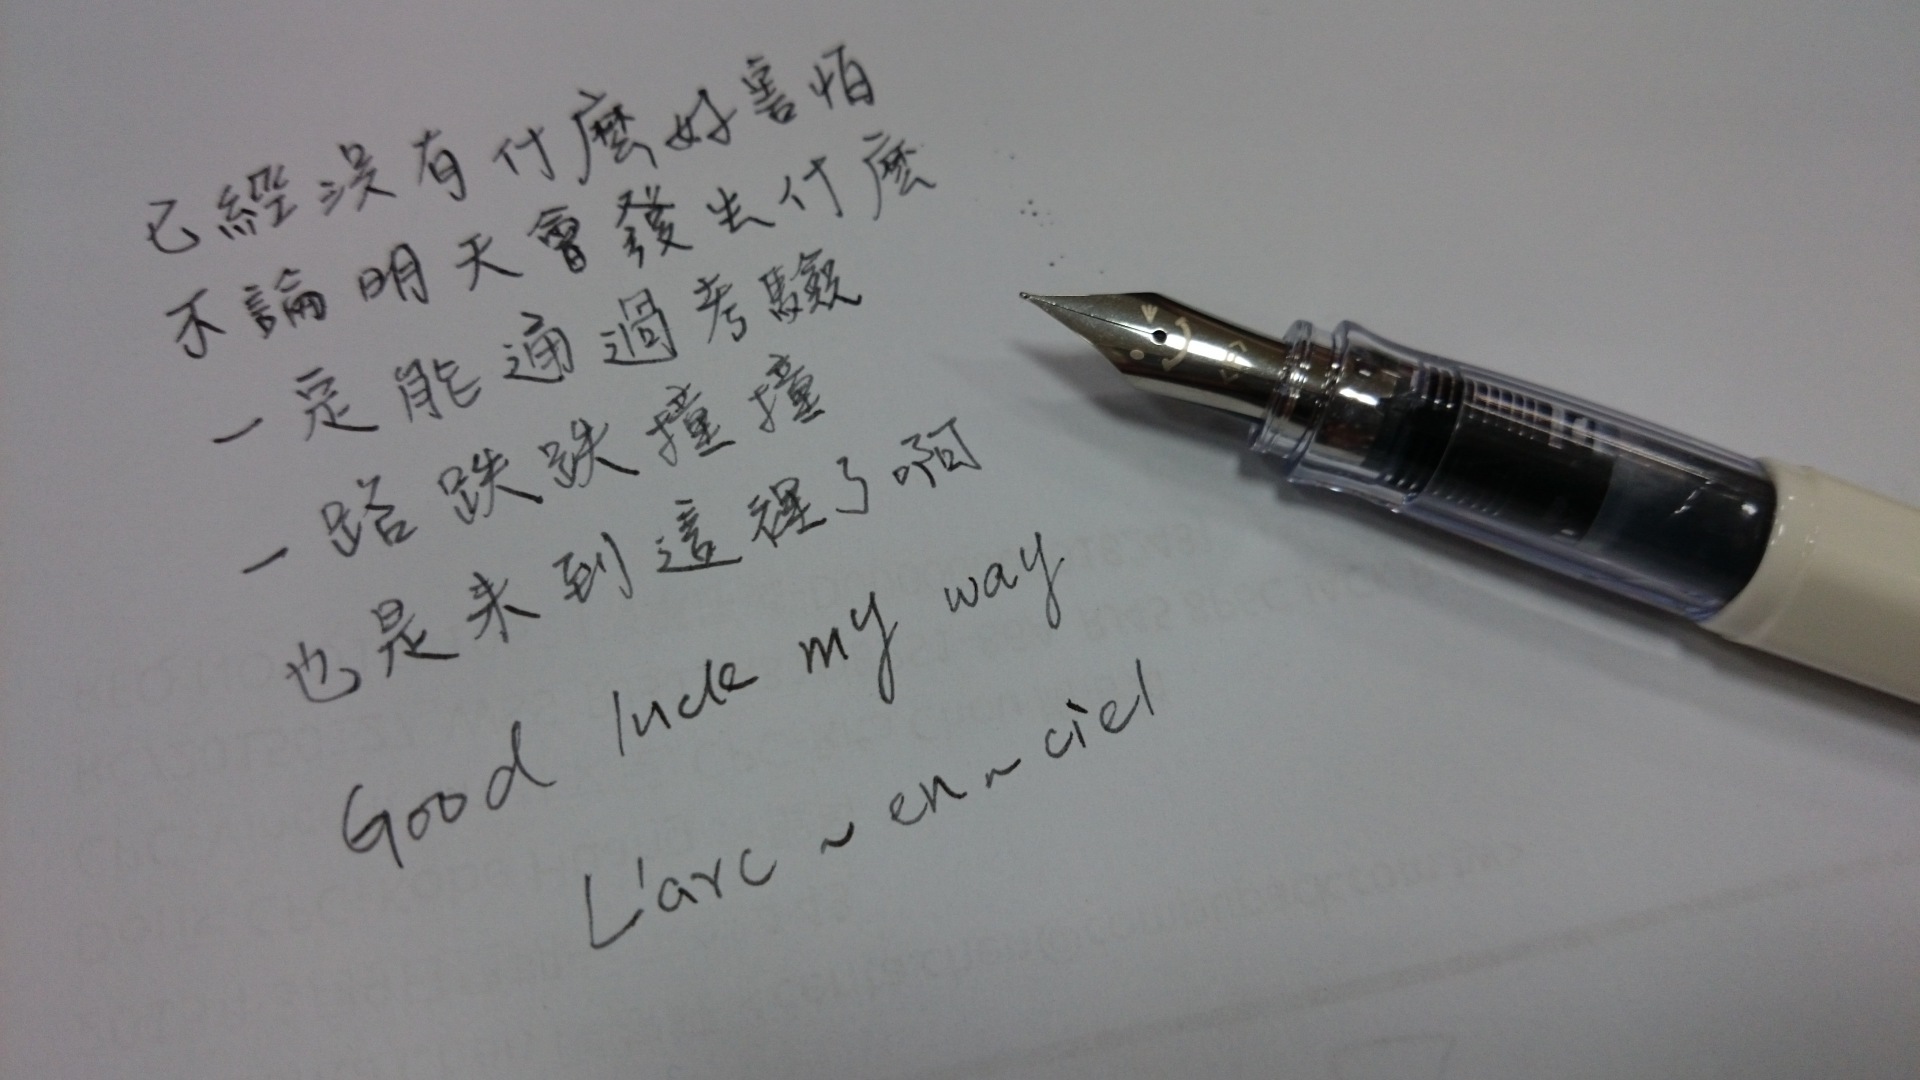 已經沒有什麼好害怕
不論明天會發生什麼
一定能通過考驗
一路跌跌撞撞
也是来到這裡了啊
Good luck my way
L'arc~en~ciel